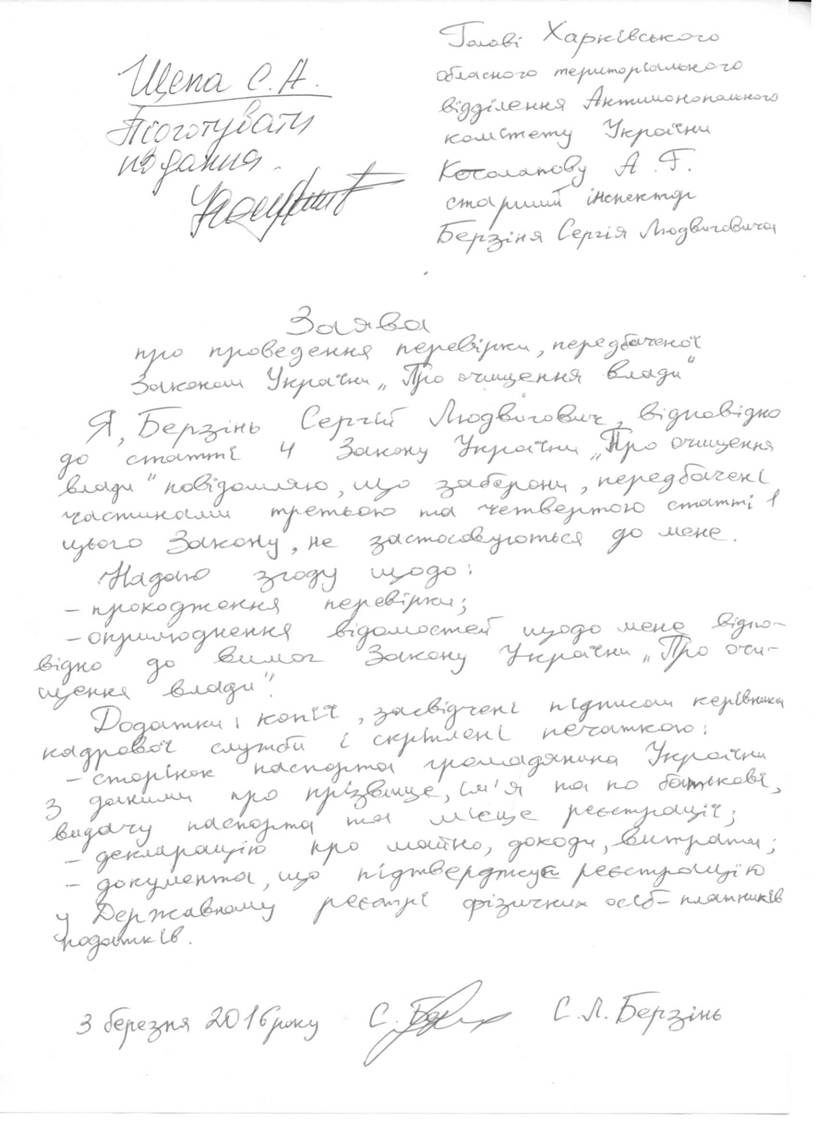 Щепа С. А.
Підготувати
подання.
Голові Харківського
обласного територіального
відділення Антимонопольного
комітету України
Косолапову А. Г.
старший інспектор
Берзіня Сергія Людвиговича
Заява
про проведення перевірки, передбаченої
Законом України „Про очищення влади"
Я, Берзінь Сергій Людвигович, відповідно
до статті 4 Закону України „Про очищення
влади" повідомляю, що заборони, передбачені
частинами третьою та четвертою статті 1
цього Закону, не застосовуються до мене.
Надаю згоду щодо:
- проходження перевірки;
- оприлюднення відомостей щодо мене відпо-
відно до вимог Закону України „Про очи-
щення влади".
Додатки: копії, засвідчені підписом керівника
кадрової служби і скріплені печаткою:
- сторінок паспорта громадянина України
з даними про прізвище, ім'я та по батькові,
видачу паспорта та місце реєстрації;
- декларацію про майно, доходи, витрати;
- документа, що підтверджує реєстрацію
у Державному реєстрі фізичних осіб-платників
податків.
3 березня 2016 року С. Л. Берзінь